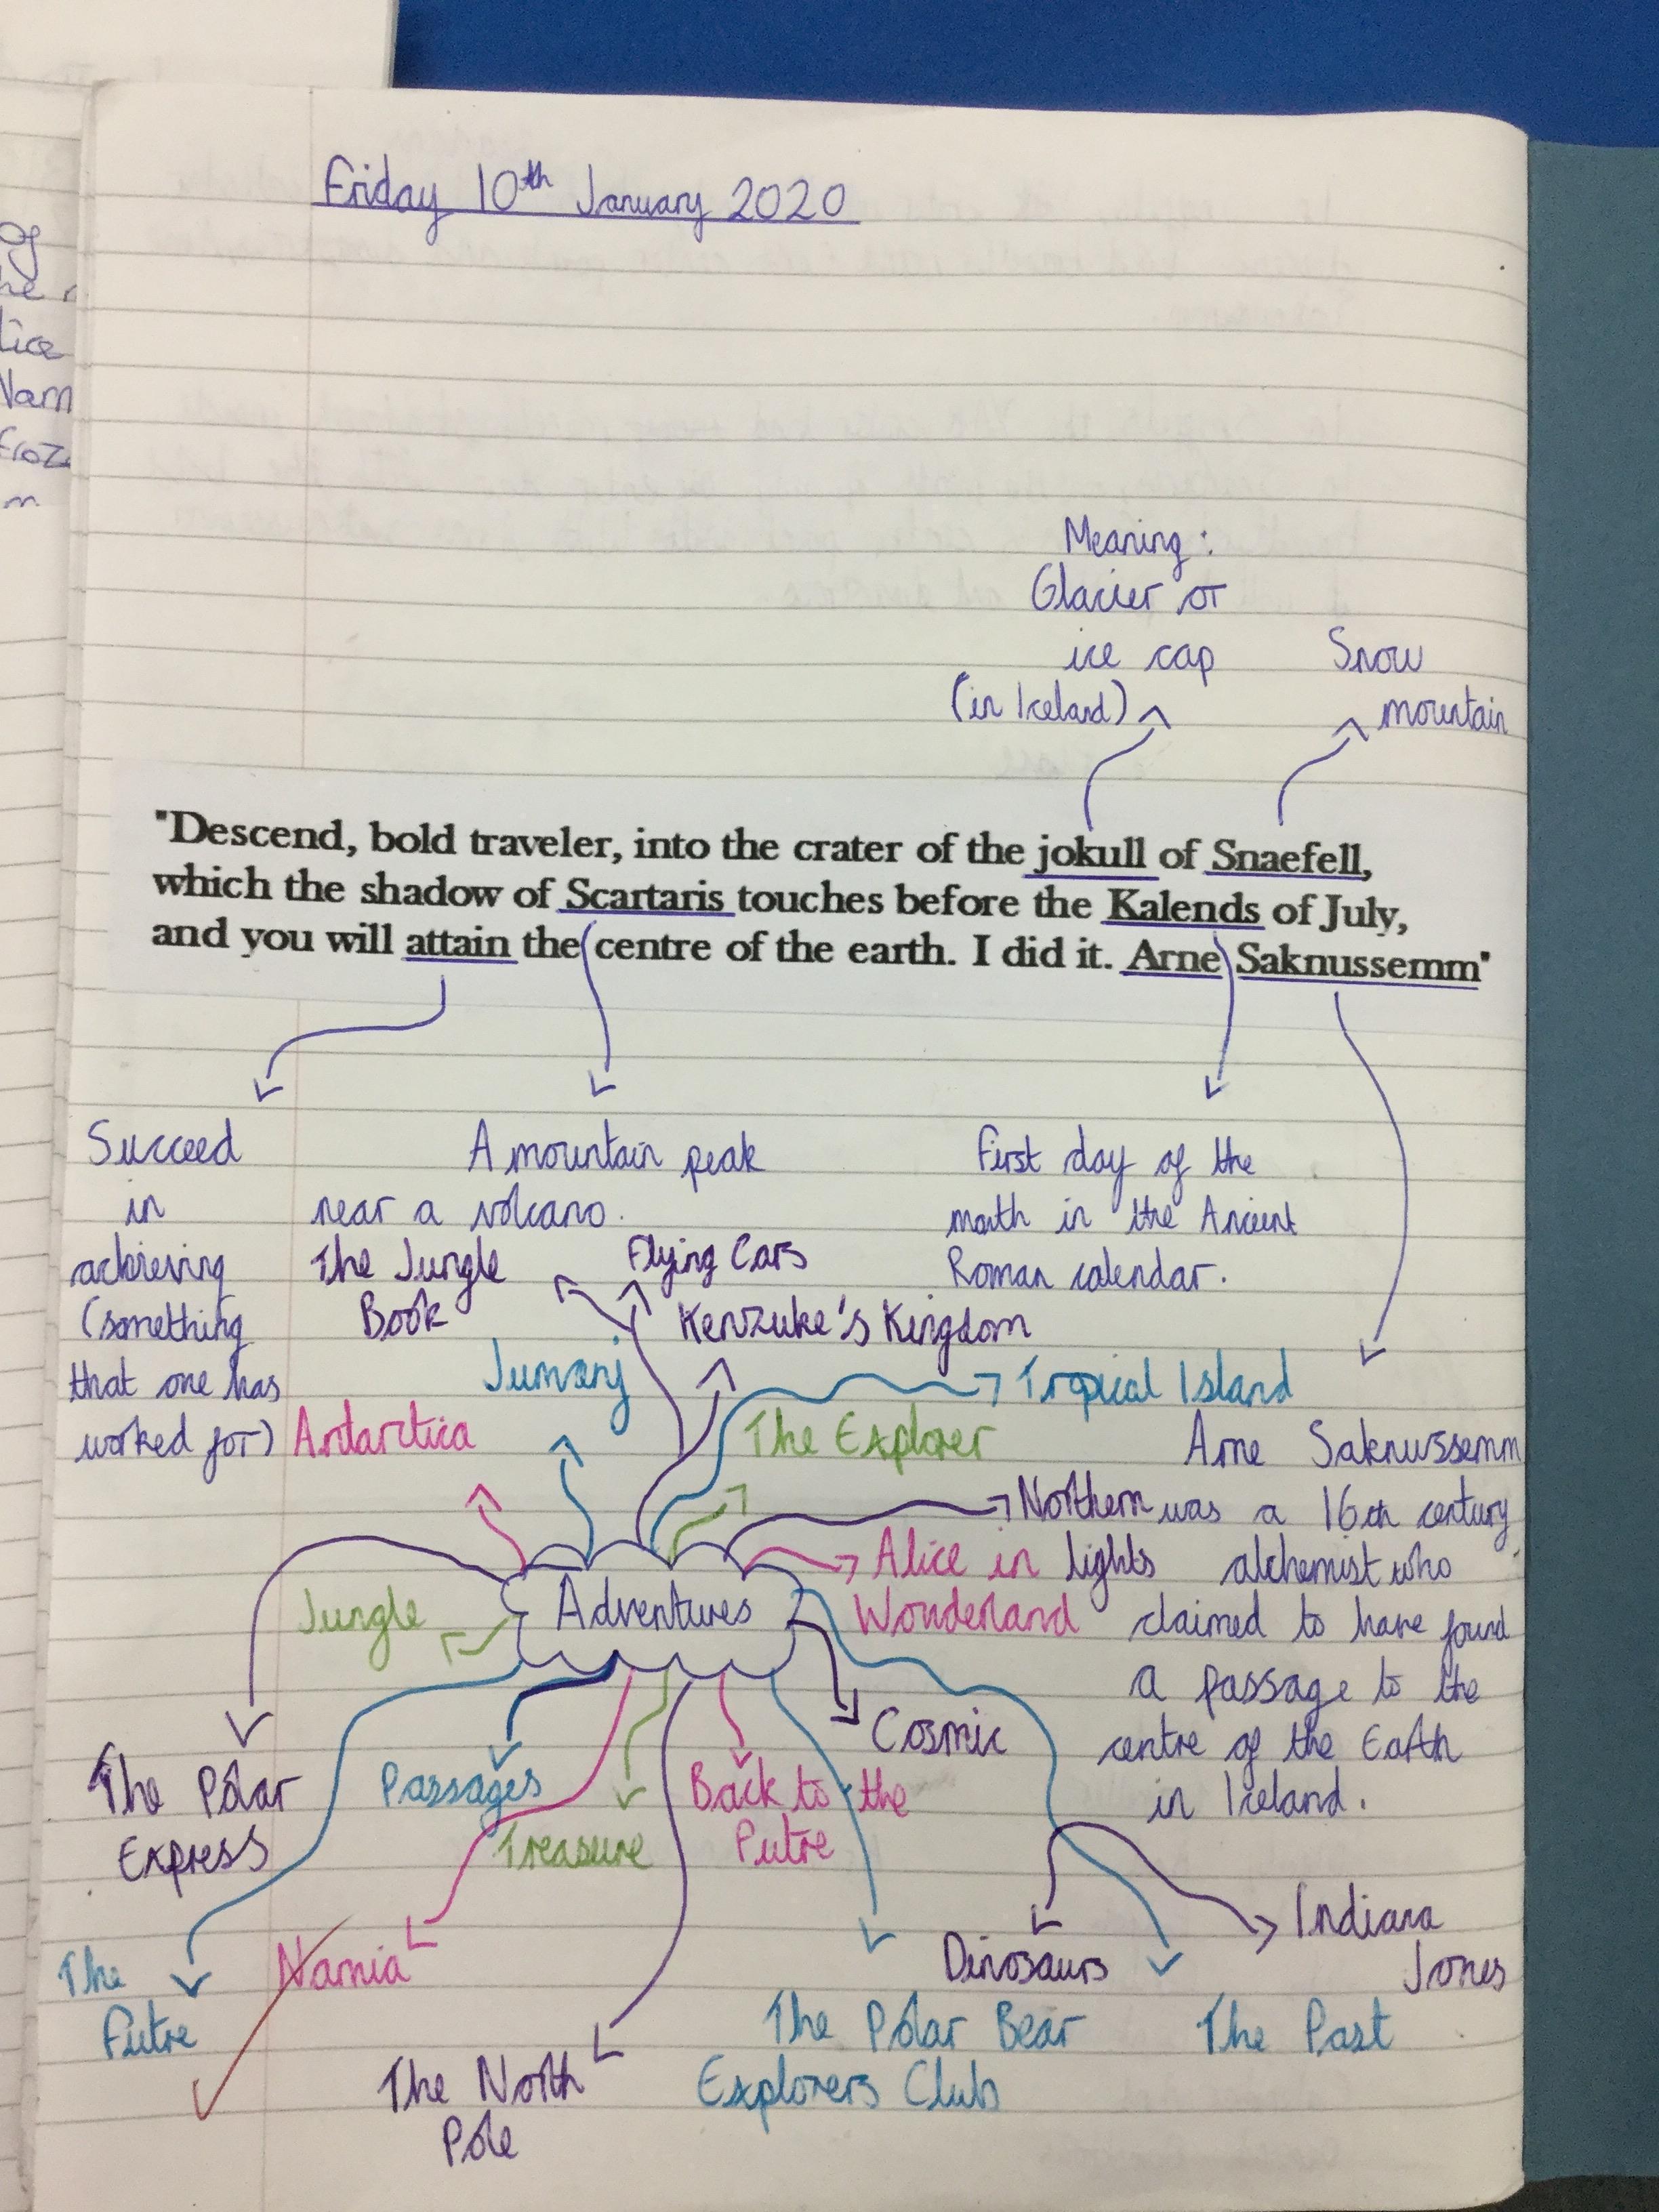 Friday 10th January 2020
Meaning:
Glacier or
ice cap
(in Iceland)
Snow
mountain
"Descend, bold traveler, into the crater of the jokull of Snaefell,
which the shadow of Scartaris touches before the Kalends of July,
and you will attain the centre of the earth. I did it. Arne Saknussemm"
Succeed
in
achieving
(something
that one has
worked for)
A mountain peak
near a volcano.
First day of the
month in the Ancient
Roman calendar.
Arne Saknussemm
was a 16th century
alchemist who
claimed to have found
a passage to the
centre of the Earth
in Iceland.
The Jungle
Book
Flying Cars
Kenzuke's Kingdom
Jumanj
Tropical Island
Antarctica
The Explorer
Northern
Lights
Alice in
Wonderland
Adventures
Jungle
Cosmic
The Polar
Express
Passages
Treasure
Back to the
Futre
Narnia
Dinosaurs
Indiana
Jones
The
Futre
The North
Pole
The Polar Bear
Explorers Club
The Past